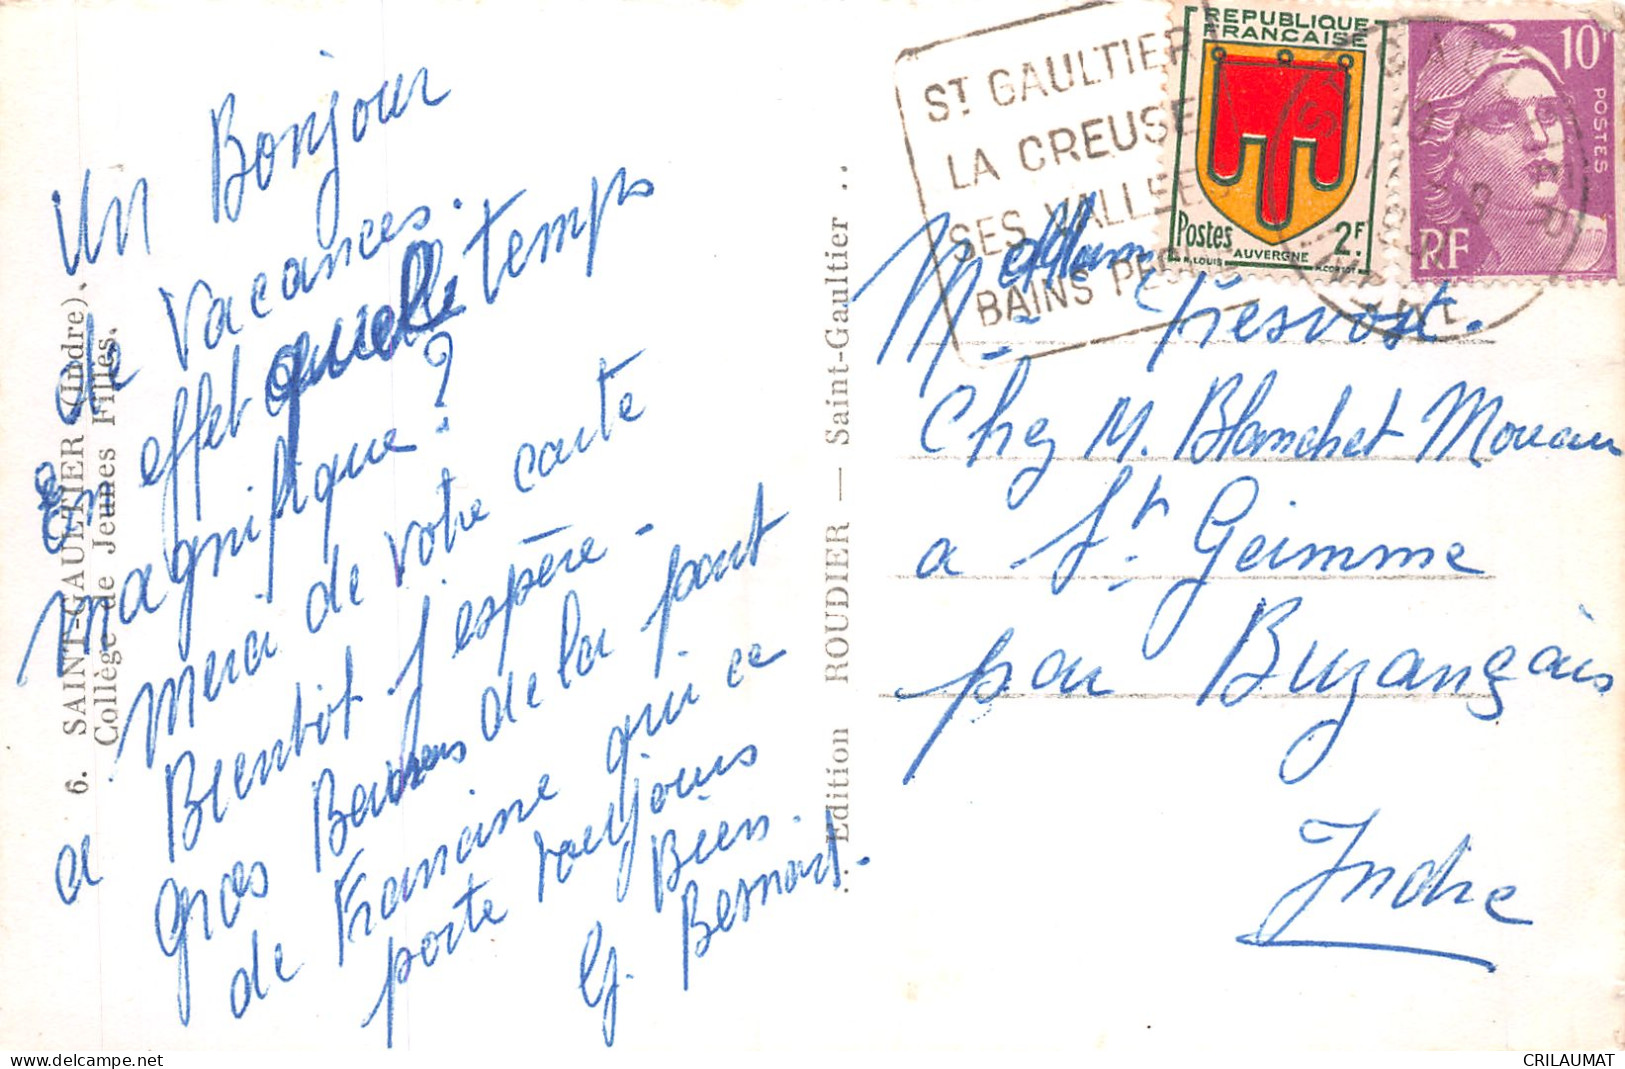 Un Bonjour
de Vacances.
En effet quelle temps
magnifique?
Merci de votre carte
a Bientôt j'espère.
gros Baisers de la part
de Francine qui ce
porte toujours
Bien.
G. Bernard.
6. SAINT-GAULTIER (Indre).
Collège de Jeunes Filles.
Edition ROUDIER — Saint-Gaultier
ST GAULTIER
LA CREUSE
SES VALLEES
BAINS
REPUBLIQUE
FRANÇAISE
Postes 2F
AUVERGNE
R. LOUIS
H. CORTOT
10F
POSTES
RF
Chez M. Blanchet Moreau
a St Geimme
par Buzançais
Indre
CRILAUMAT